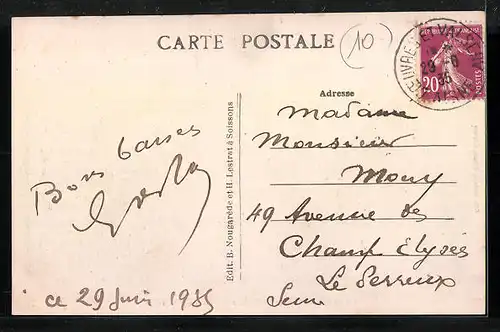 CARTE POSTALE
10
20
Adresse
Madame
Monsieur
Mouy
49 Avenue des
Champ Elysés
Le Perreux
Seine
Bons baisers
ce 29 Juin 1935
Edit. B. Nougarède et H. Lestrat à Soissons